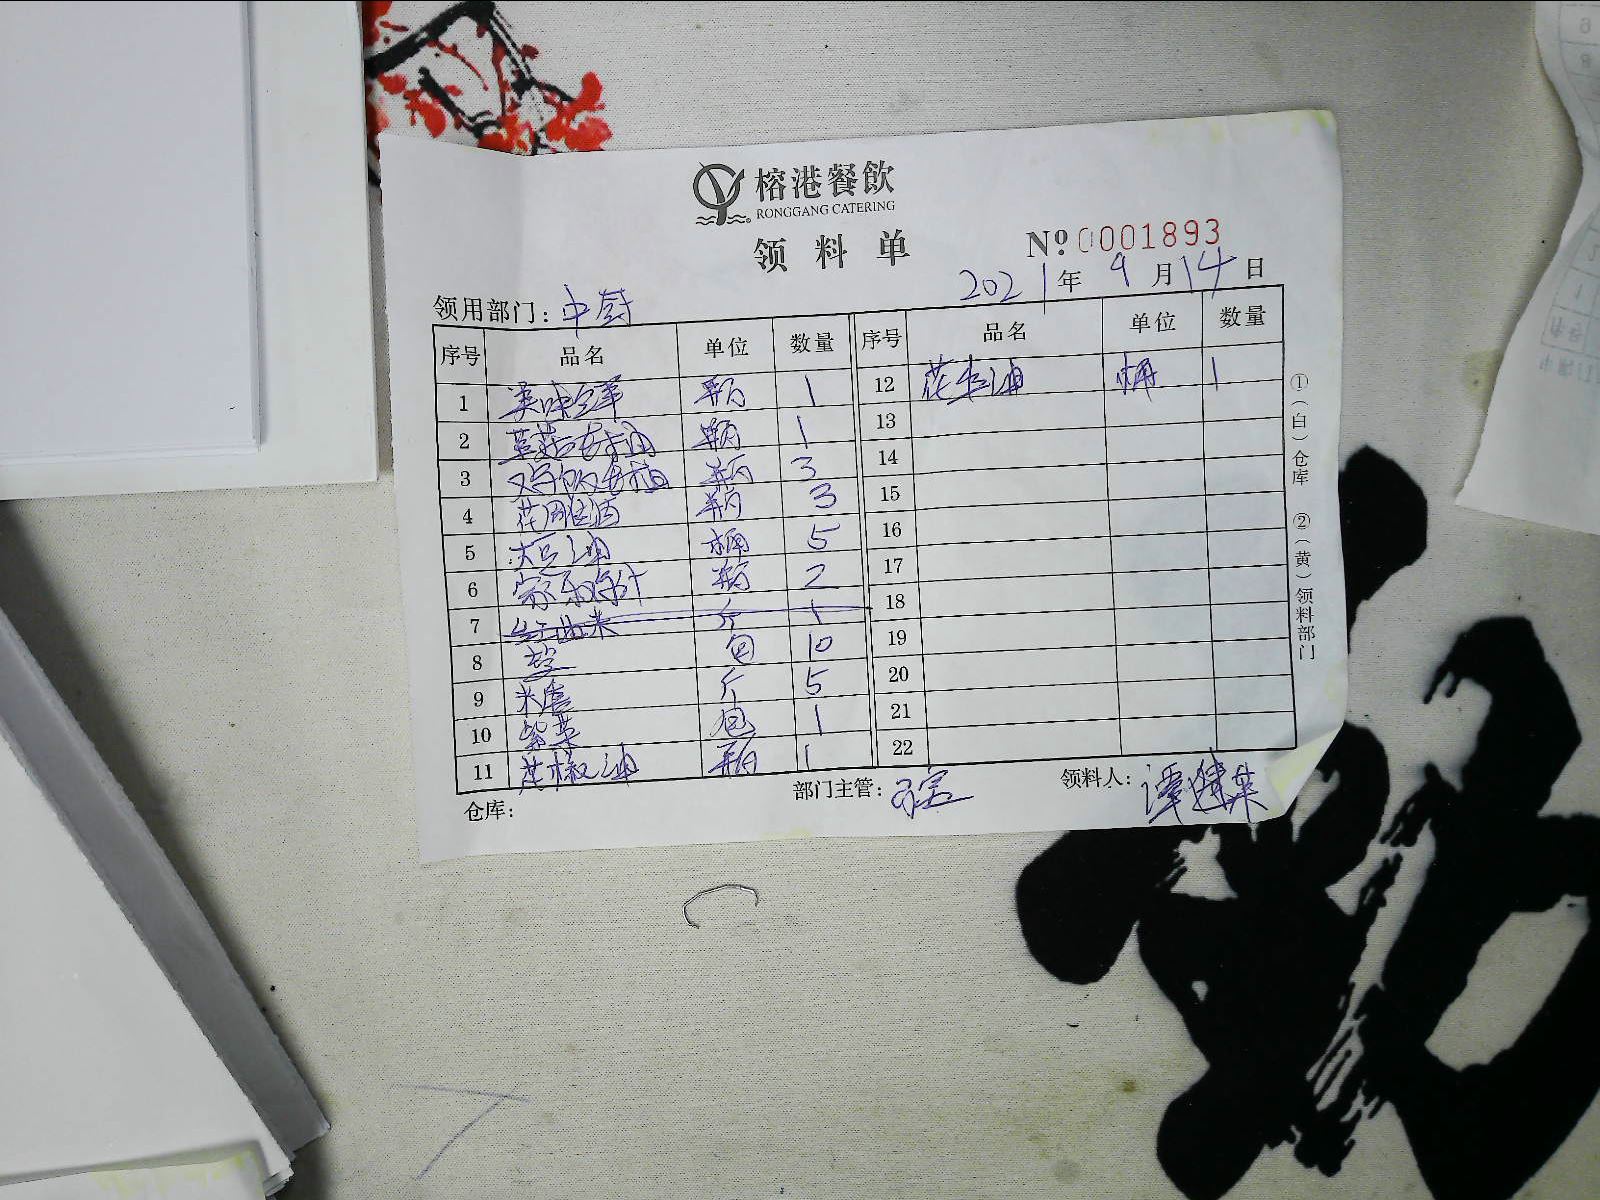 榕港餐飲
RONGGANG CATERING
领料单
№0001893
2021年9月14日
领用部门：中厨
序号 品名 单位 数量 序号 品名 单位 数量
1 美味鲜 瓶 1 12 花生油 桶 1
2 草菇老抽 瓶 1 13
3 瓶 3 14
4 花雕酒 瓶 3 15
5 大豆油 桶 5 16
6 瓶 2 17
7 红曲米 斤 1 18
8 盐 包 10 19
9 米 斤 5 20
10 紫菜 包 1 21
11 花椒油 瓶 1 22
仓库： 部门主管： 领料人：谭
①（白）仓库 ②（黄）领料部门